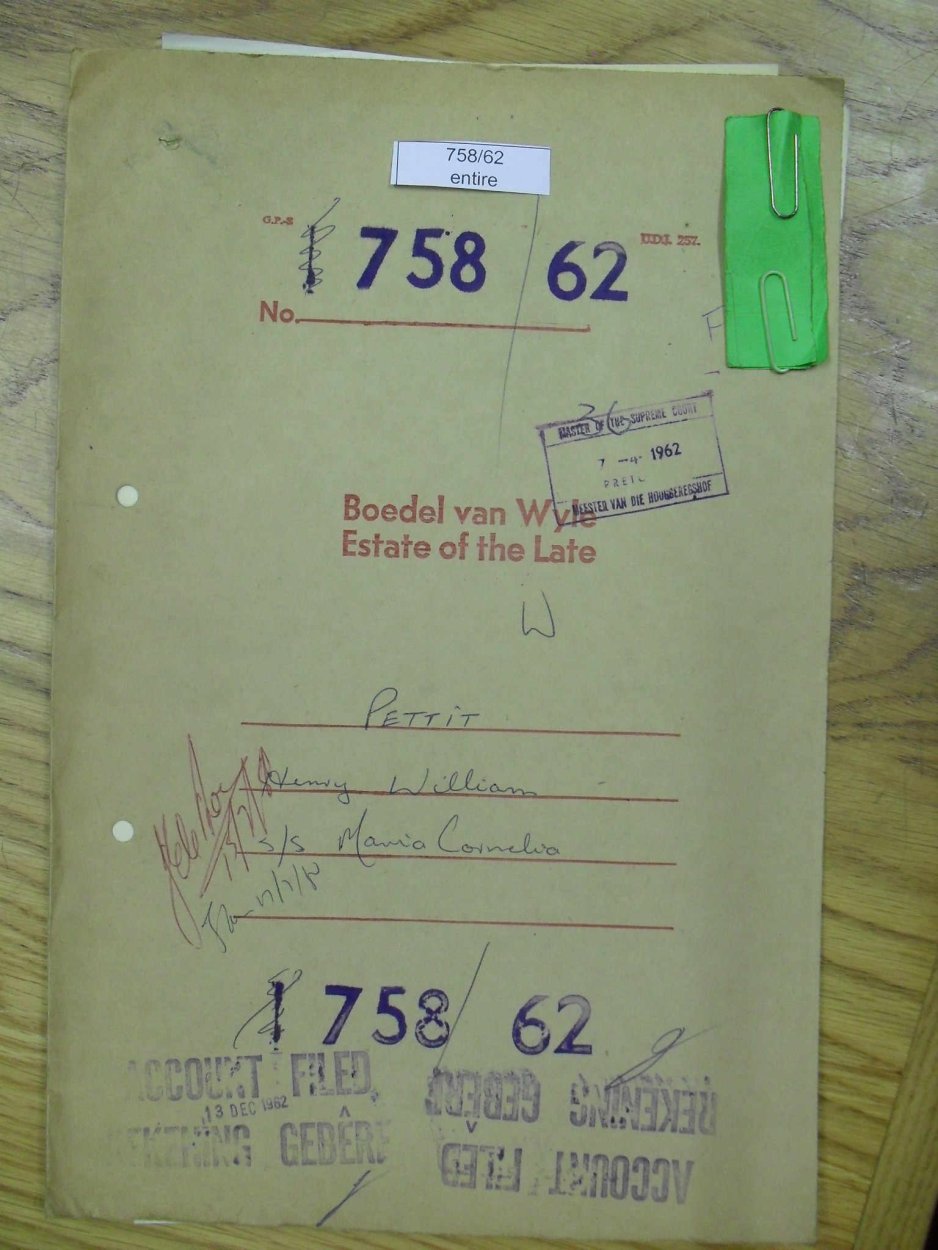 758/62
entire
G.P.-S
U.D.J. 257.
758/62
No.
36
MASTER OF THE SUPREME COURT
7 -4- 1962
PRET
MEESTER VAN DIE HOOGGEREGSHOF
Boedel van Wyle
Estate of the Late
W
PETTIT
Henry William
s/s Maria Cornelia
758/62
ACCOUNT FILED,
13 DEC 1962
REKENING GEBÊRE
REKENING GEBÊRE
ACCOUNT FILED